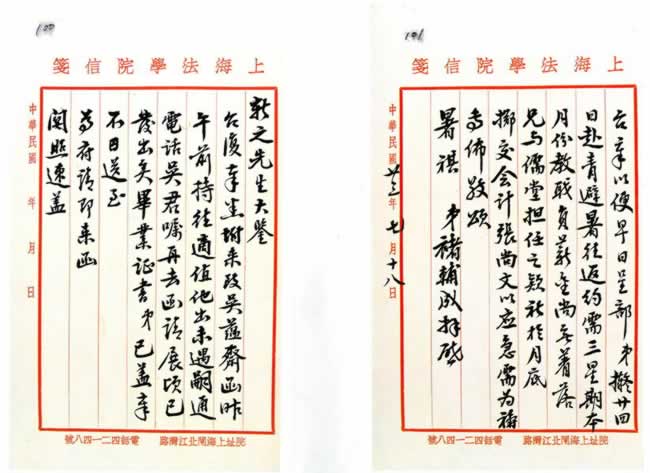 100
上海法學院信箋
新之先生大鑒
台復奉悉附来致吳蕴齋函昨
午前持往適值他出未遇嗣通
電話吳君嘱再去函請展頃已
發出矣畢業证書弟已盖章
不日送至
尊府請即来函
閲照速盖
中華民國 年 月 日
院址上海閘北江灣路 電話四二一四八號
101
上海法學院信箋
台章以便早日呈部弟擬廿四
日赴青避暑往返约需三星期本
月份教職員薪金尚無着落
兄与儒堂担任之款祈於月底
擲交会计張尚文以应急需为禱
專佈敬頌
暑祺 弟褚輔成拜啓
中華民國廿三年七月十八日
院址上海閘北江灣路 電話四二一四八號